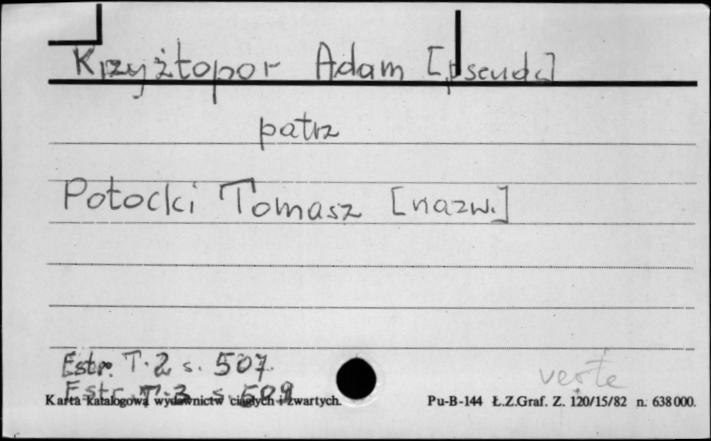 Krzyżtopor Adam [pseud.]
patrz
Potocki Tomasz [nazw.]
Estr. T. 2 s. 507.
Estr. T. 3 s. 509
verte
Karta katalogowa wydawnictw ciągłych i zwartych.
Pu-B-144 Ł.Z.Graf. Z. 120/15/82 n. 638000.